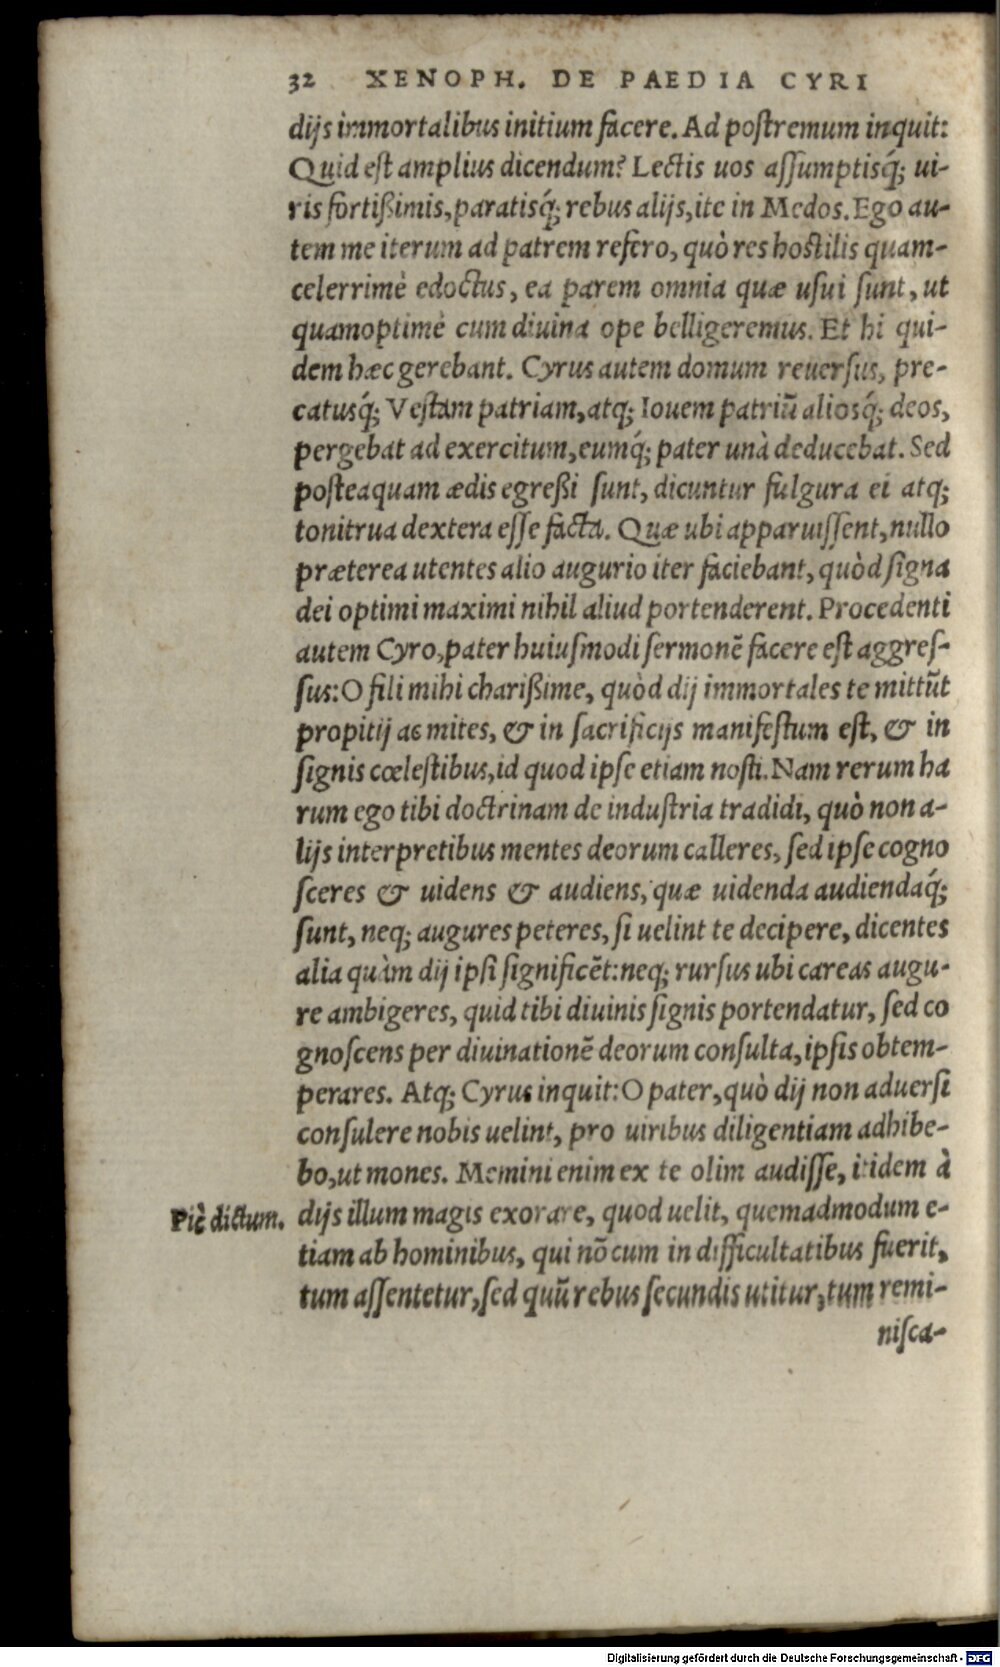 32 XENOPH. DE PAEDIA CYRI
dijs immortalibus initium facere. Ad postremum inquit:
Quid est amplius dicendum? Lectis uos assumptisq́; ui-
ris fortißimis, paratisq́; rebus alijs, ite in Medos. Ego au-
tem me iterum ad patrem refero, quò res hostilis quam-
celerrimè edoctus, ea parem omnia quæ usui sunt, ut
quamoptimè cum diuina ope belligeremus. Et hi qui-
dem hæc gerebant. Cyrus autem domum reuersus, pre-
catusq́; Vestam patriam, atq; Iouem patriũ aliosq́; deos,
pergebat ad exercitum, eumq́; pater unà deducebat. Sed
posteaquam ædis egreßi sunt, dicuntur fulgura ei atq;
tonitrua dextera esse facta. Quæ ubi apparuissent, nullo
præterea utentes alio augurio iter faciebant, quòd signa
dei optimi maximi nihil aliud portenderent. Procedenti
autem Cyro, pater huiusmodi sermonẽ facere est aggres-
sus: O fili mihi charißime, quòd dij immortales te mittũt
propitij ac mites, & in sacrificijs manifestum est, & in
signis cœlestibus, id quod ipse etiam nosti. Nam rerum ha
rum ego tibi doctrinam de industria tradidi, quò non a-
lijs interpretibus mentes deorum calleres, sed ipse cogno
sceres & uidens & audiens, quæ uidenda audiendaq́;
sunt, neq; augures peteres, si uelint te decipere, dicentes
alia quàm dij ipsi significẽt: neq; rursus ubi careas augu-
re ambigeres, quid tibi diuinis signis portendatur, sed co
gnoscens per diuinationẽ deorum consulta, ipsis obtem-
perares. Atq; Cyrus inquit: O pater, quò dij non aduersi
consulere nobis uelint, pro uiribus diligentiam adhibe-
bo, ut mones. Memini enim ex te olim audisse, itidem à
Piè dictum. dijs illum magis exorare, quod uelit, quemadmodum e-
tiam ab hominibus, qui nõ cum in difficultatibus fuerit,
tum assentetur, sed quũ rebus secundis utitur, tum remi-
nisca-
Digitalisierung gefördert durch die Deutsche Forschungsgemeinschaft - DFG